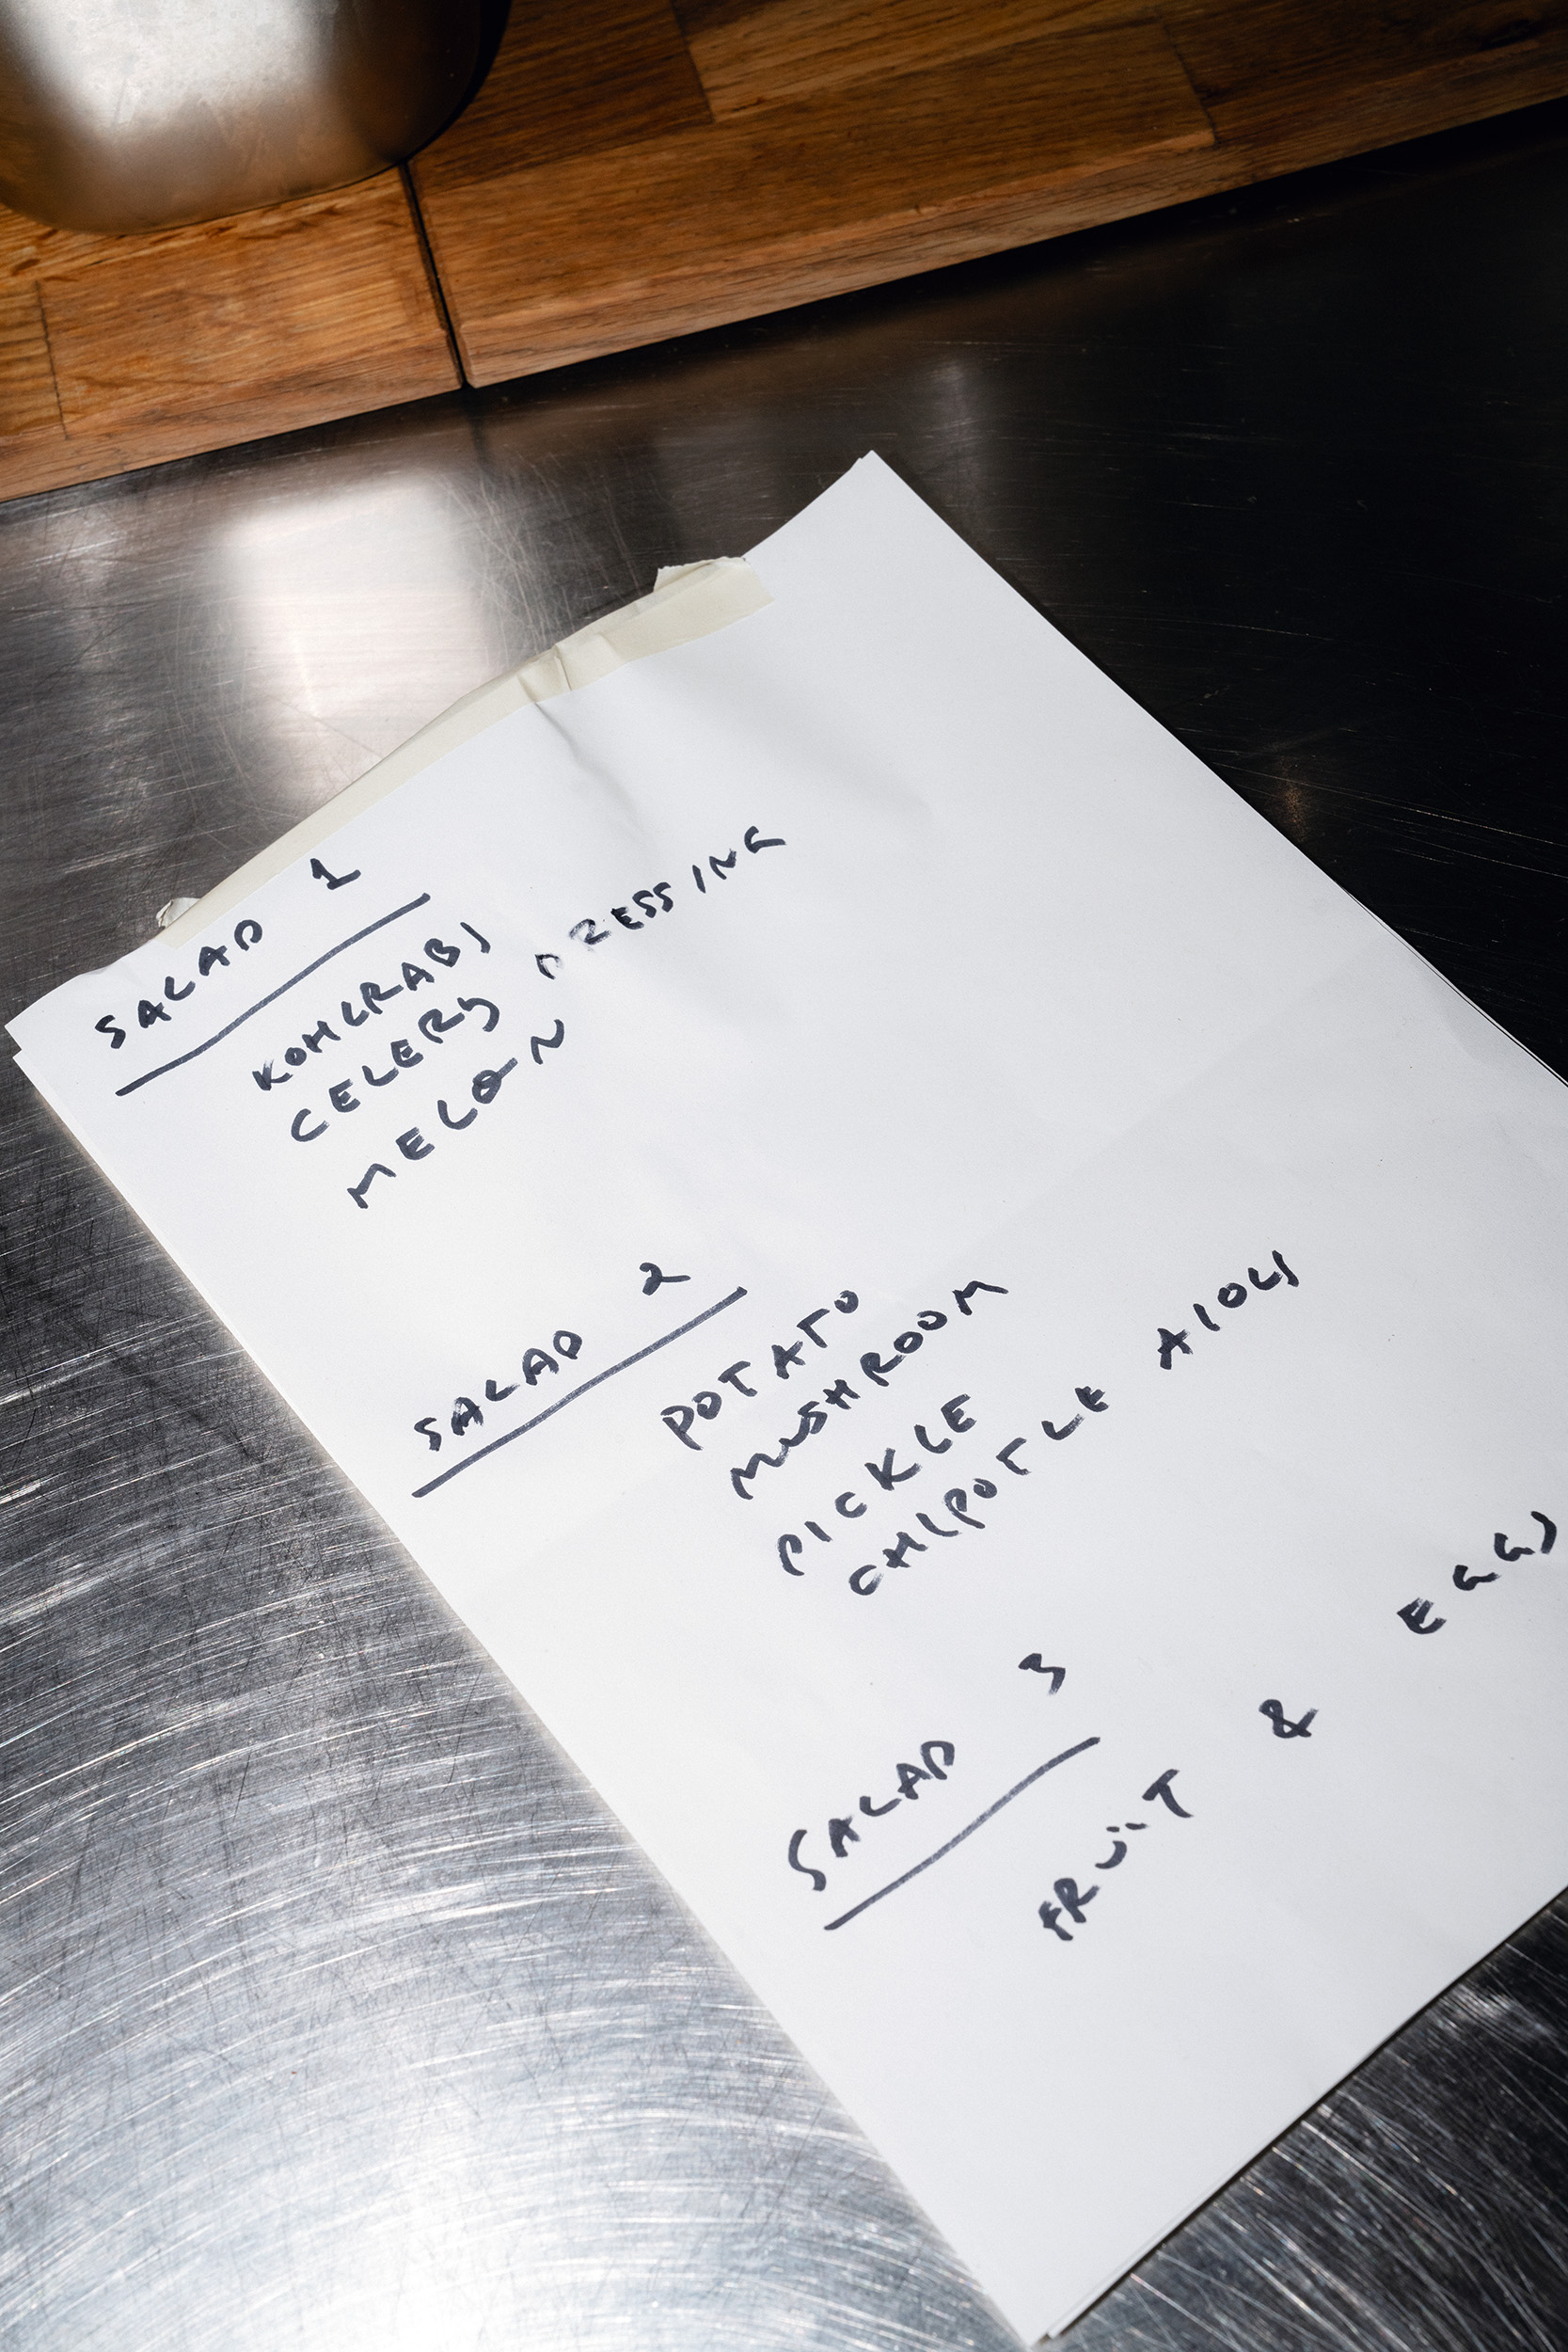 SALAD 1
KOHLRABI
CELERY DRESSING
MELON
SALAD 2
POTATO
MUSHROOM
PICKLE
CHIPOTLE AIOLI
SALAD 3
FRUIT & EGGS